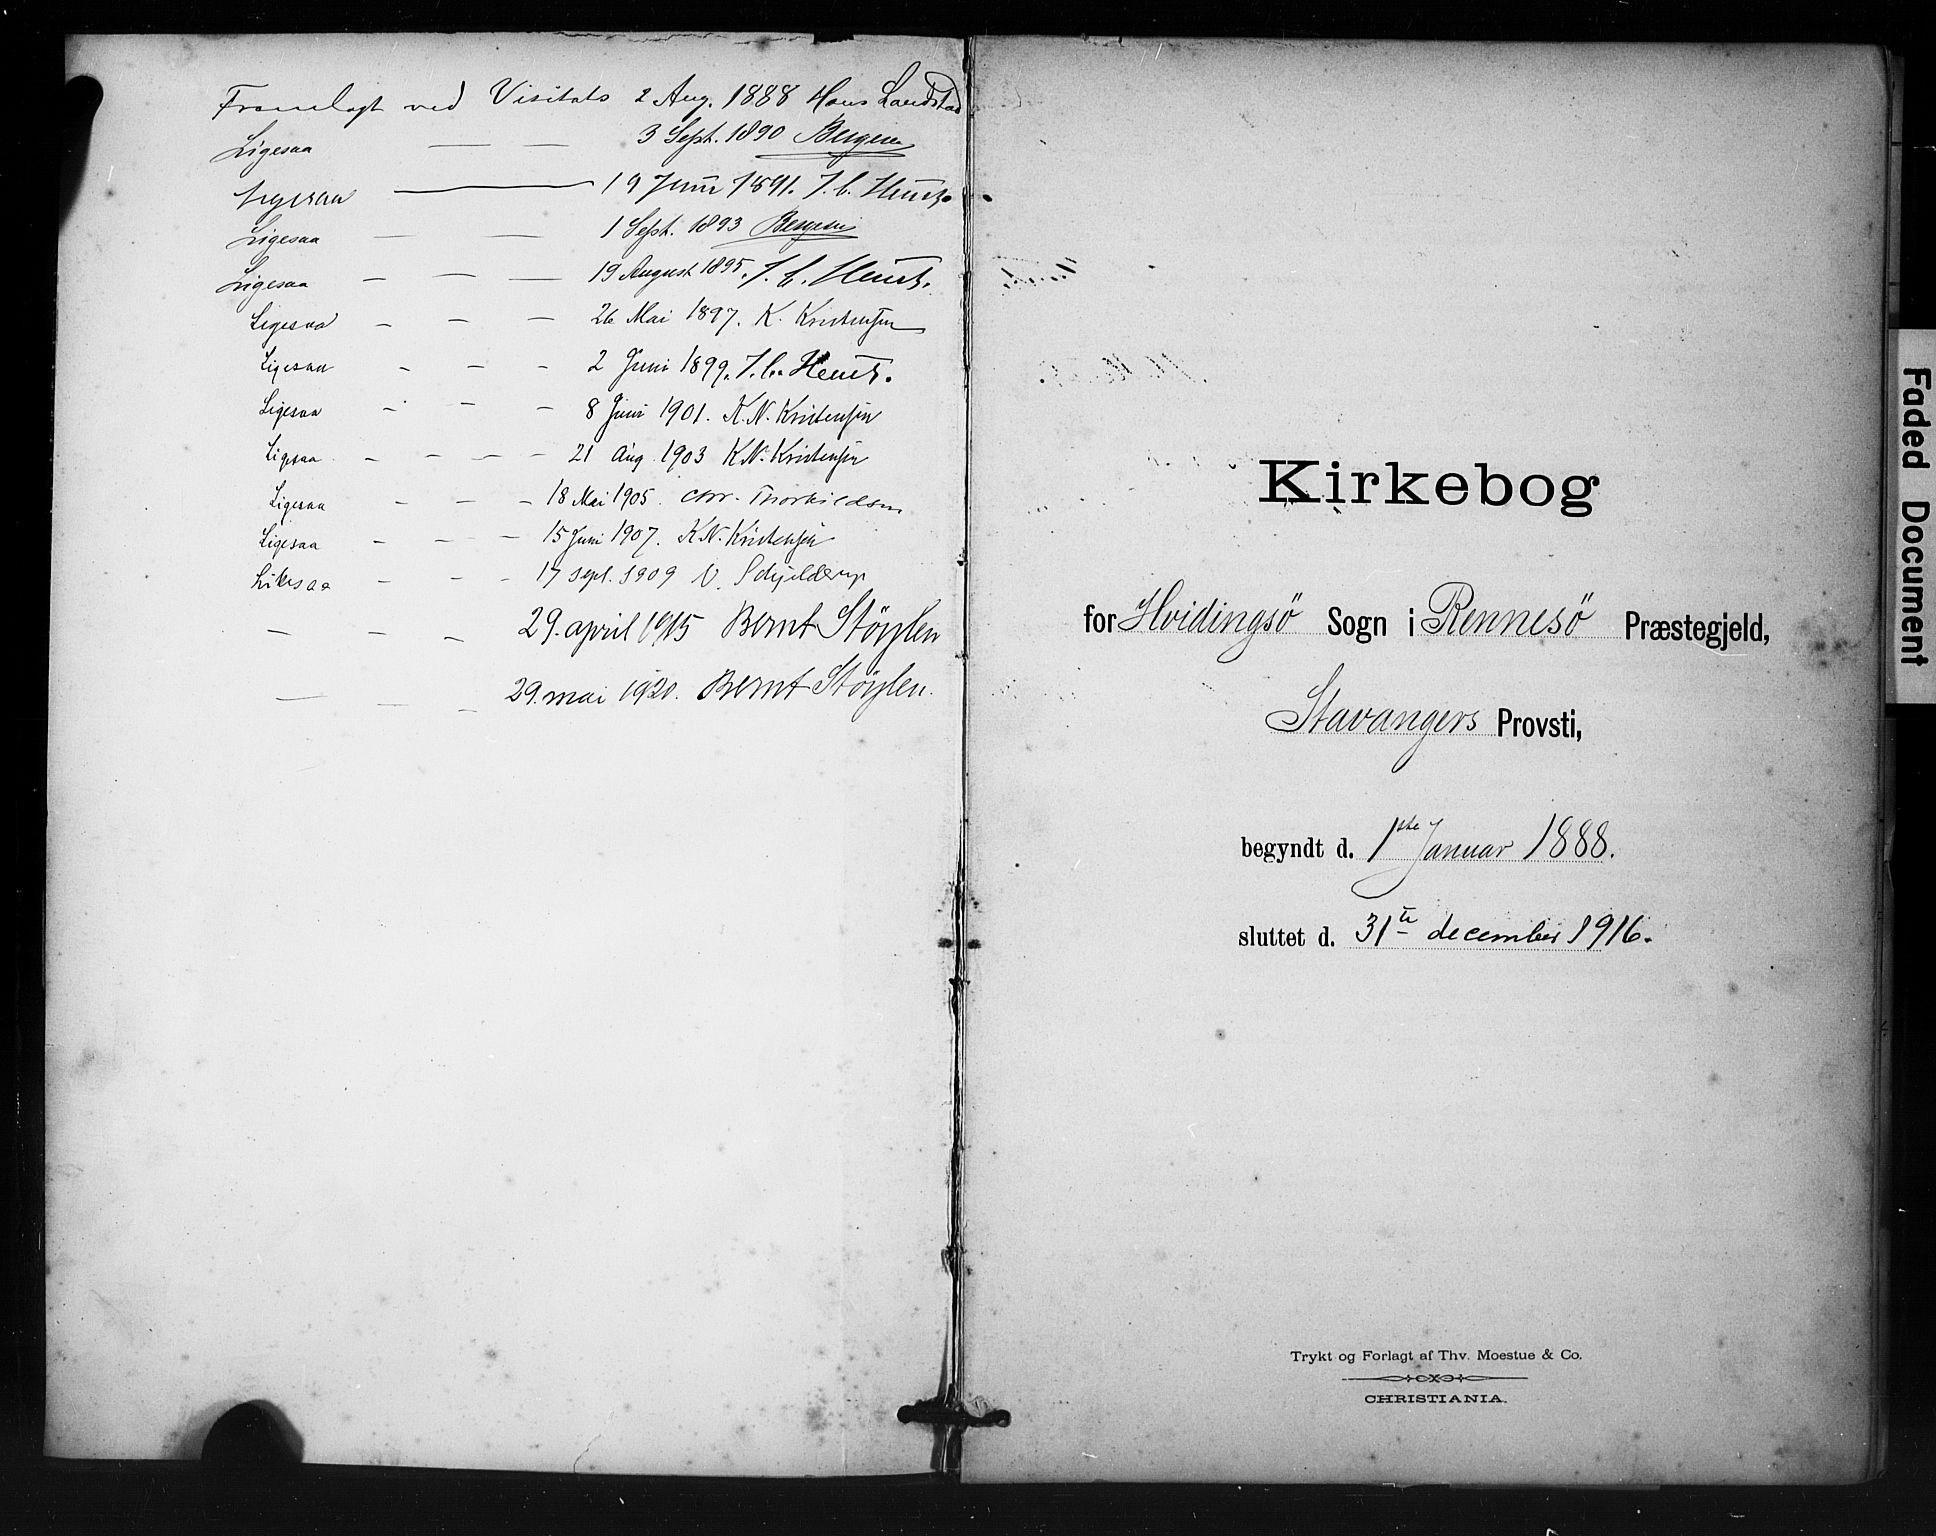 Fremlagt ved Visitats 2 Aug. 1888 Hans Landstad
Ligesaa — — 3 Sept. 1890 Bergesen
Ligesaa — 19 Juni 1891. J. C. Heuch.
Ligesaa — — 1 Sept. 1893 Bergesen
Ligesaa — — — 19 August 1895. J. C. Heuch.
Ligesaa — — — 26 Mai 1897. K. Kristensen
Ligesaa - - - 2 Juni 1899. J. C. Heuch.
Ligesaa - - - 8 Juni 1901. K. N. Kristensen
Ligesaa - - - - 21 Aug 1903 K. N. Kristensen
Ligesaa - - - 18 Mai 1905. Chr. Thorkildsen
Ligesaa - - - 15 Juni 1907. K. N. Kristensen
Likesaa - - - 17 sept. 1909 V. Schjelderup
- - - 29. april 1915 Bernt Støylen
— — - 29. mai 1920. Bernt Støylen.
Kirkebog
for Hvidingsö Sogn i Rennesö Præstegjeld,
Stavangers Provsti,
begyndt d. 1ste Januar 1888.
sluttet d. 31te december 1916.
Trykt og Forlagt af Thv. Moestue & Co.
CHRISTIANIA.
Faded Document